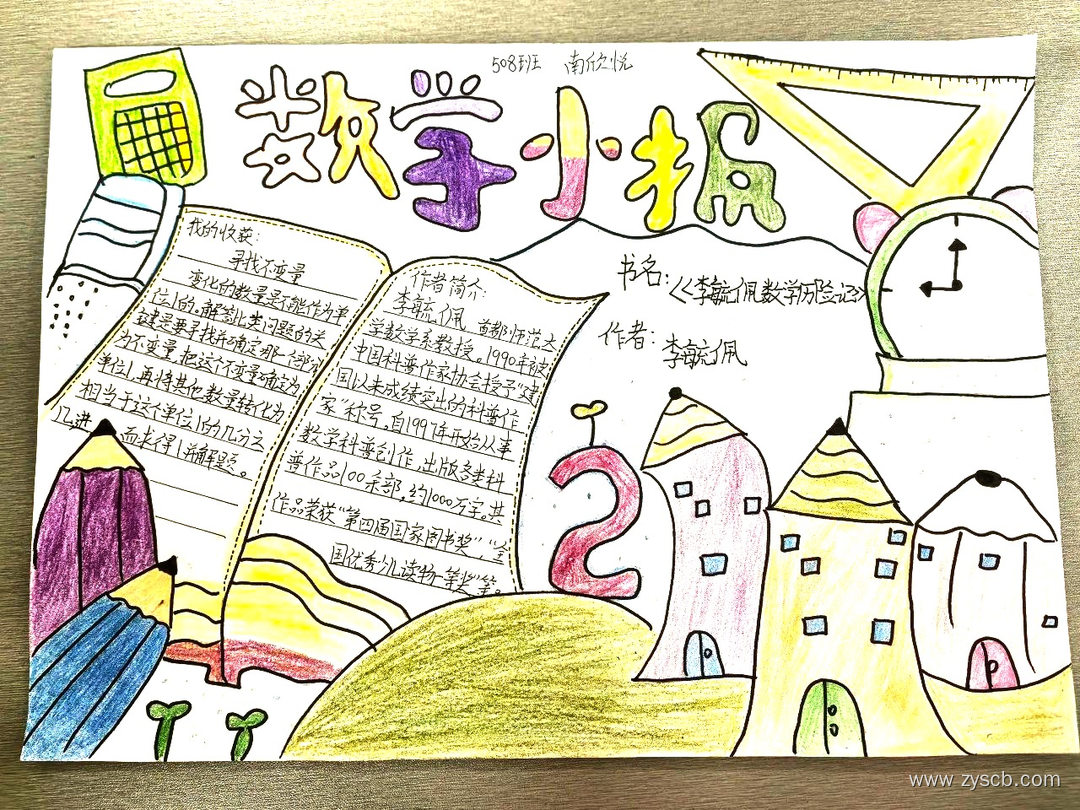 508班 南欣悦
数学小报
我的收获:
寻找不变量
变化的数量是不能作为单
位1的。解答此类问题的关
键是要寻找并确定那一个部分
为不变量,把这个不变量确定为
单位1,再将其他数量转化为
相当于这个单位1的几分之
几,进而求得1并解题。
作者简介:
李毓佩 首都师范大
学数学系教授。1990年被
中国科普作家协会授予“建
国以来成绩突出的科普作
家”称号,自1997年开始从事
数学科普创作,出版各类科
普作品100余部,约1000万字。其
作品荣获“第四届国家图书奖”,“全
国优秀少儿读物一等奖”等。
书名:《李毓佩数学历险记》
作者:李毓佩
2
www.zyscb.com